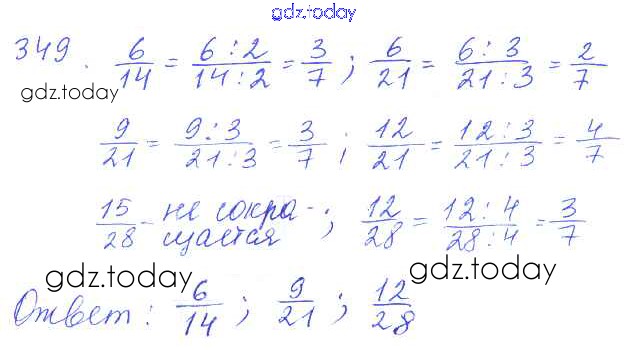 gdz.today
349. 6/14 = 6:2/14:2 = 3/7; 6/21 = 6:3/21:3 = 2/7
gdz.today
9/21 = 9:3/21:3 = 3/7; 12/21 = 12:3/21:3 = 4/7
15/28 - не сокра-; 12/28 = 12:4/28:4 = 3/7
щается
gdz.today gdz.today
Ответ: 6/14; 9/21; 12/28